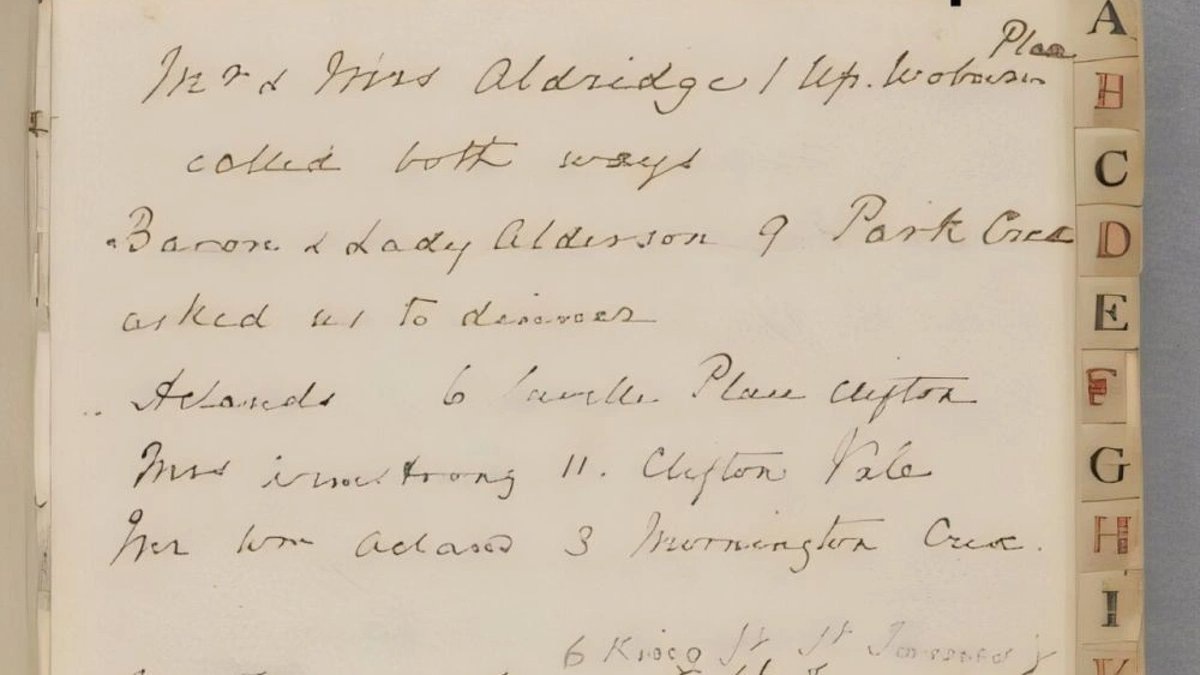 Place
Mr & Mrs Aldridge 1 Up. Woburn
called both ways
Baron & Lady Alderson 9 Park Cres
asked us to dinner
Aclands 6 Saville Place Clifton
Mrs Armstrong 11. Clifton Vale
Mr Wm Acland 3 Mornington Cres.
6 King St St James's
A
B
C
D
E
F
G
H
I
K